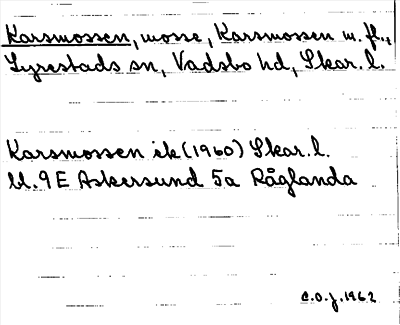 Karsmossen, mosse, Karsmossen m. fl.,
Lyrestads sn, Vadsbo hd, Skar. l.
Karsmossen ek (1960) Skar. l.
Bl. 9 E Askersund 5a Råglanda
C.O.J. 1962